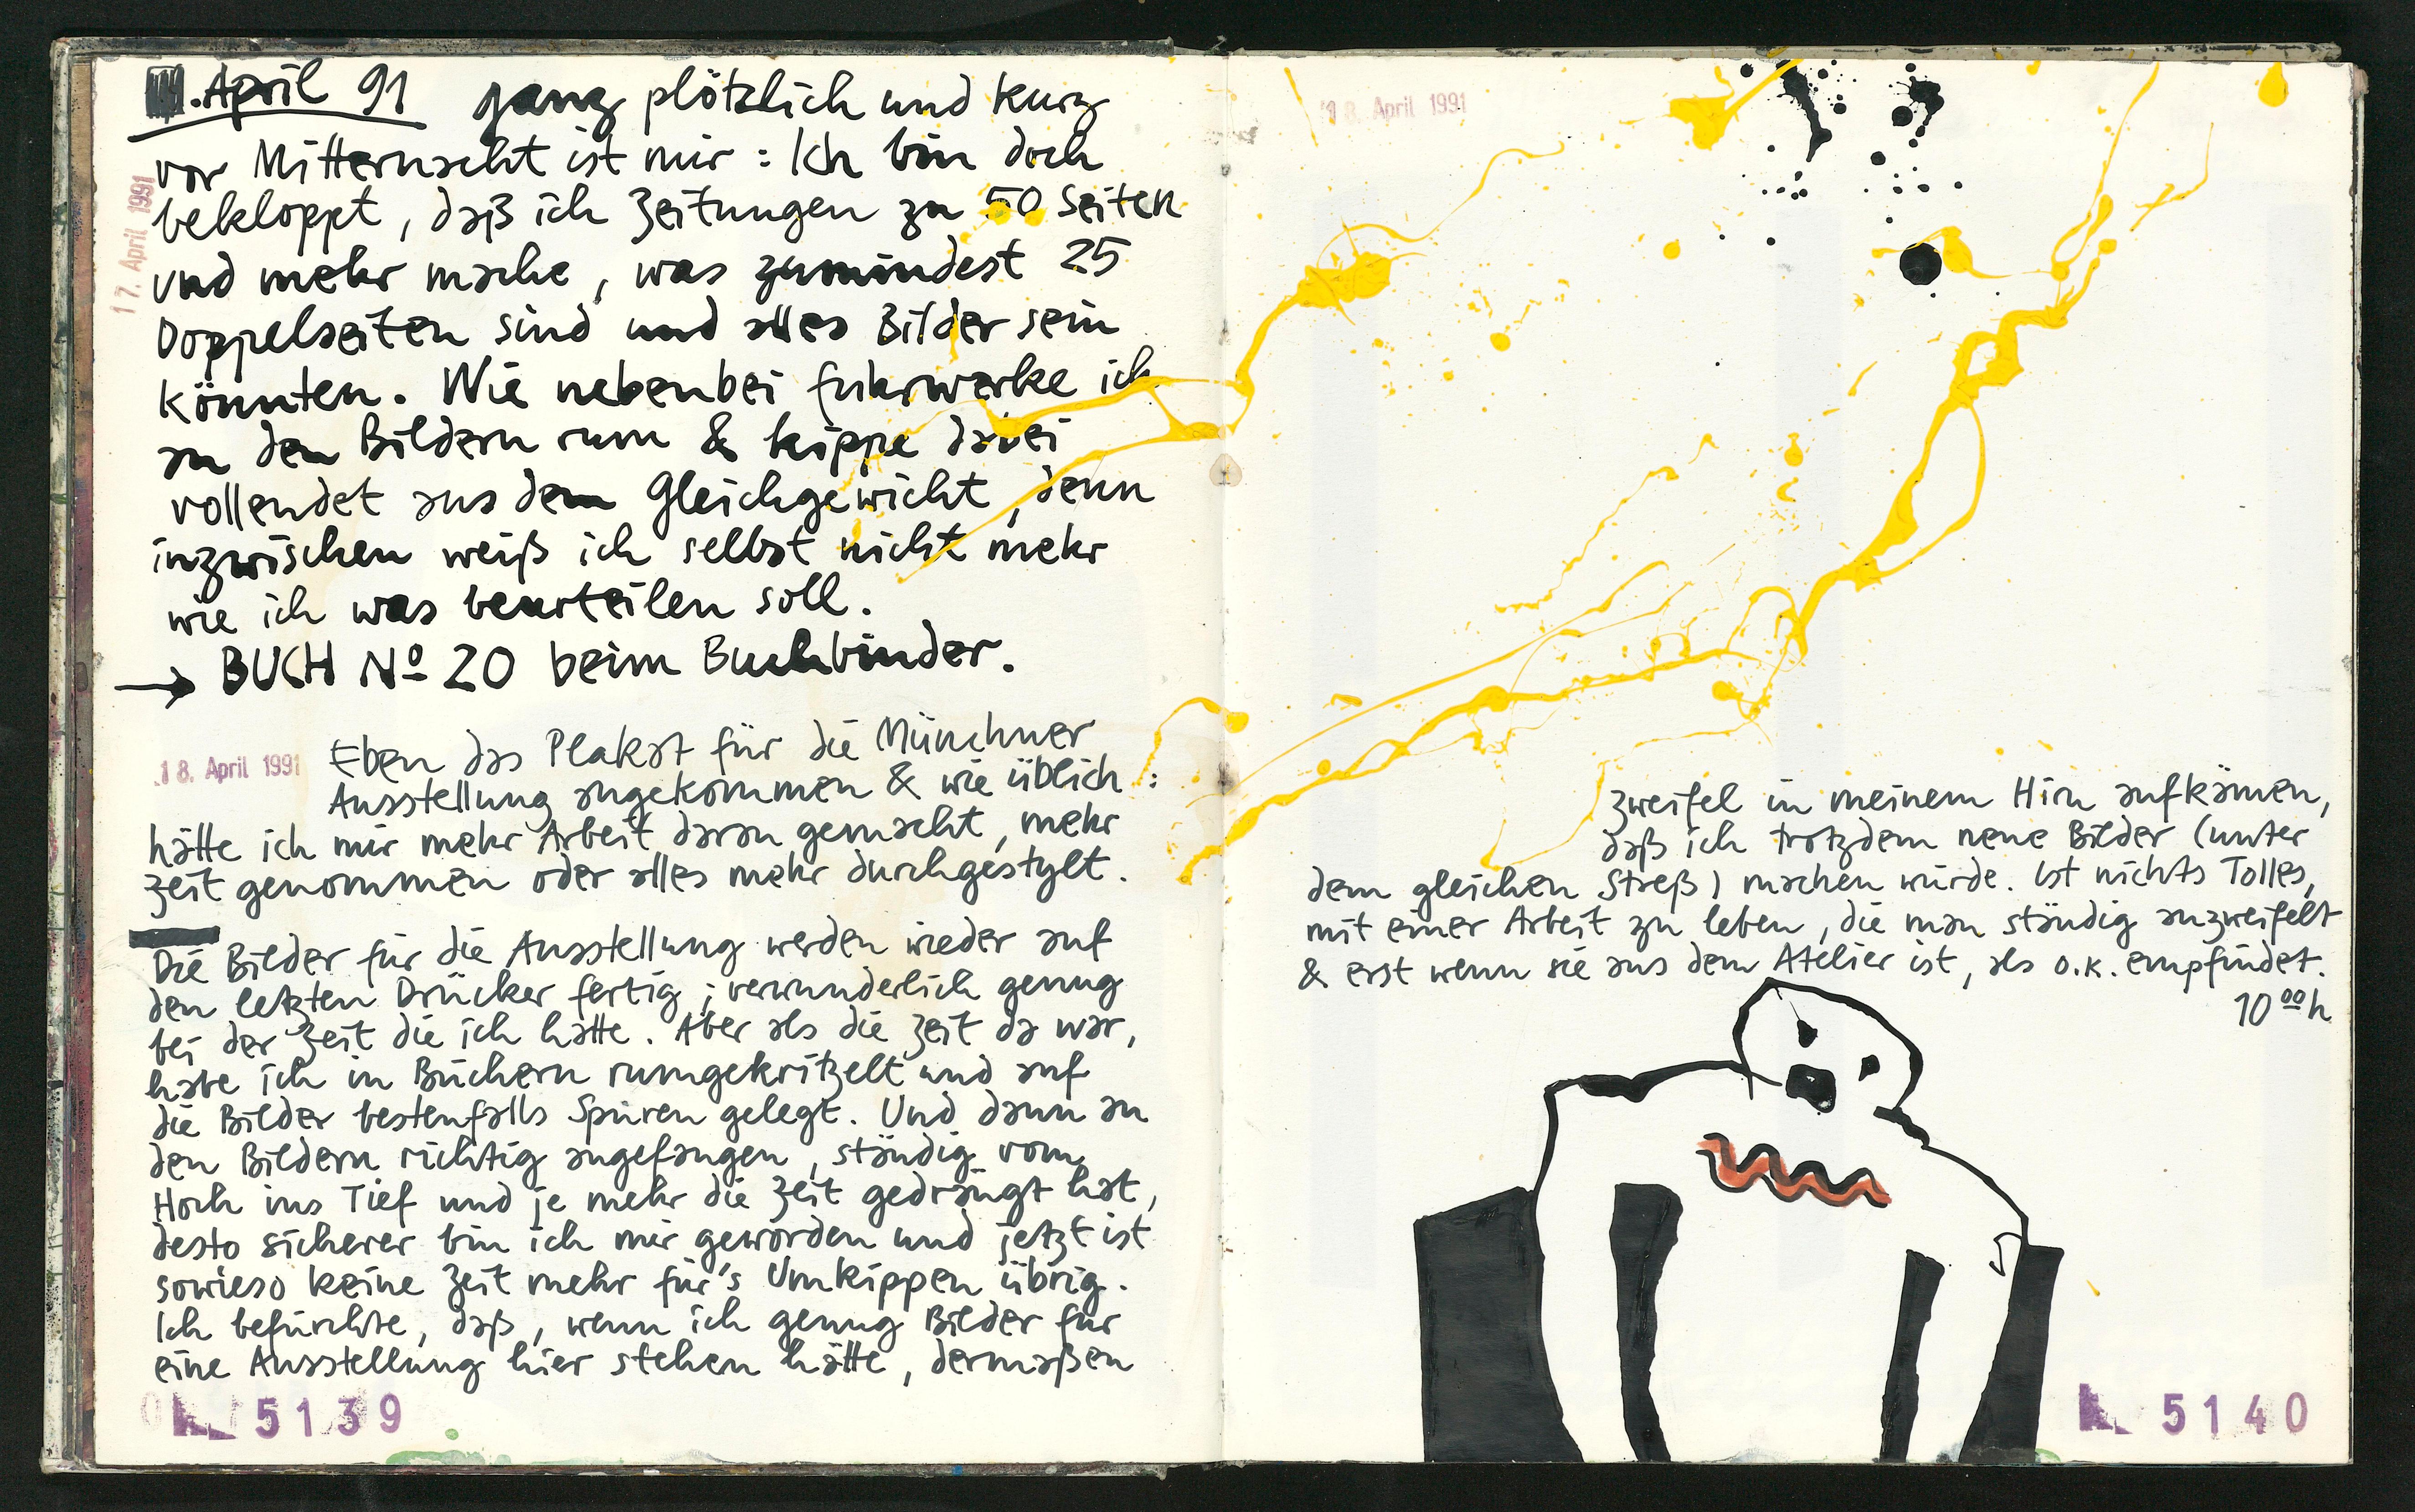 . April 91 ganz plötzlich und kurz
vor Mitternacht ist mir : Ich bin doch
bekloppt, daß ich Zeitungen zu 50 Seiten
und mehr mache, was zumindest 25
Doppelseiten sind und alles Bilder sein
könnten. Wie nebenbei fuhrwerke ich
an den Bildern rum & kippe dabei
vollendet aus dem Gleichgewicht, denn
inzwischen weiß ich selbst nicht mehr
wie ich was beurteilen soll.
→ BUCH Nº 20 beim Buchbinder.
17. April 1991
18. April 1991 Eben das Plakat für die Münchner
Ausstellung angekommen & wie üblich :
hätte ich mir mehr Arbeit daran gemacht, mehr
Zeit genommen oder alles mehr durchgestylt.
Die Bilder für die Ausstellung werden wieder auf
den letzten Drücker fertig ; verwunderlich genug
bei der Zeit die ich hatte. Aber als die Zeit da war,
habe ich in Büchern rumgekritzelt und auf
die Bilder bestenfalls Spuren gelegt. Und dann an
den Bildern richtig angefangen, ständig vom
Hoch ins Tief und je mehr die Zeit gedrängt hat,
desto sicherer bin ich mir geworden und jetzt ist
sowieso keine Zeit mehr für's Umkippen übrig.
Ich befürchte, daß, wenn ich genug Bilder für
eine Ausstellung hier stehen hätte, dermaßen
5139
18. April 1991
Zweifel in meinem Hirn aufkämen,
daß ich trotzdem neue Bilder (unter
dem gleichen Streß) machen würde. Ist nichts Tolles,
mit einer Arbeit zu leben, die man ständig anzweifelt
& erst wenn sie aus dem Atelier ist, als o.k. empfindet.
10⁰⁰h
5140